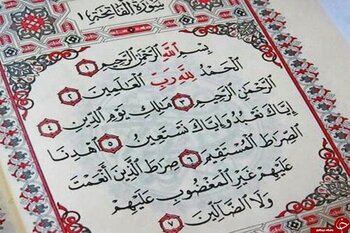 سُورَةُ الْفَاتِحَةِ ١
بِسْمِ اللَّهِ الرَّحْمَٰنِ الرَّحِيمِ ١
الْحَمْدُ لِلَّهِ رَبِّ الْعَالَمِينَ ٢
الرَّحْمَٰنِ الرَّحِيمِ ٣ مَالِكِ يَوْمِ الدِّينِ ٤
إِيَّاكَ نَعْبُدُ وَإِيَّاكَ نَسْتَعِينُ ٥ اهْدِنَا
الصِّرَاطَ الْمُسْتَقِيمَ ٦ صِرَاطَ الَّذِينَ أَنْعَمْتَ
عَلَيْهِمْ غَيْرِ الْمَغْضُوبِ عَلَيْهِمْ
وَلَا الضَّالِّينَ ٧